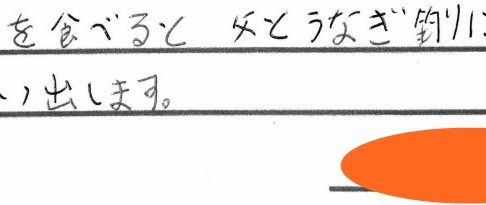 を食べると 父とうなぎ釣りに
い出します。